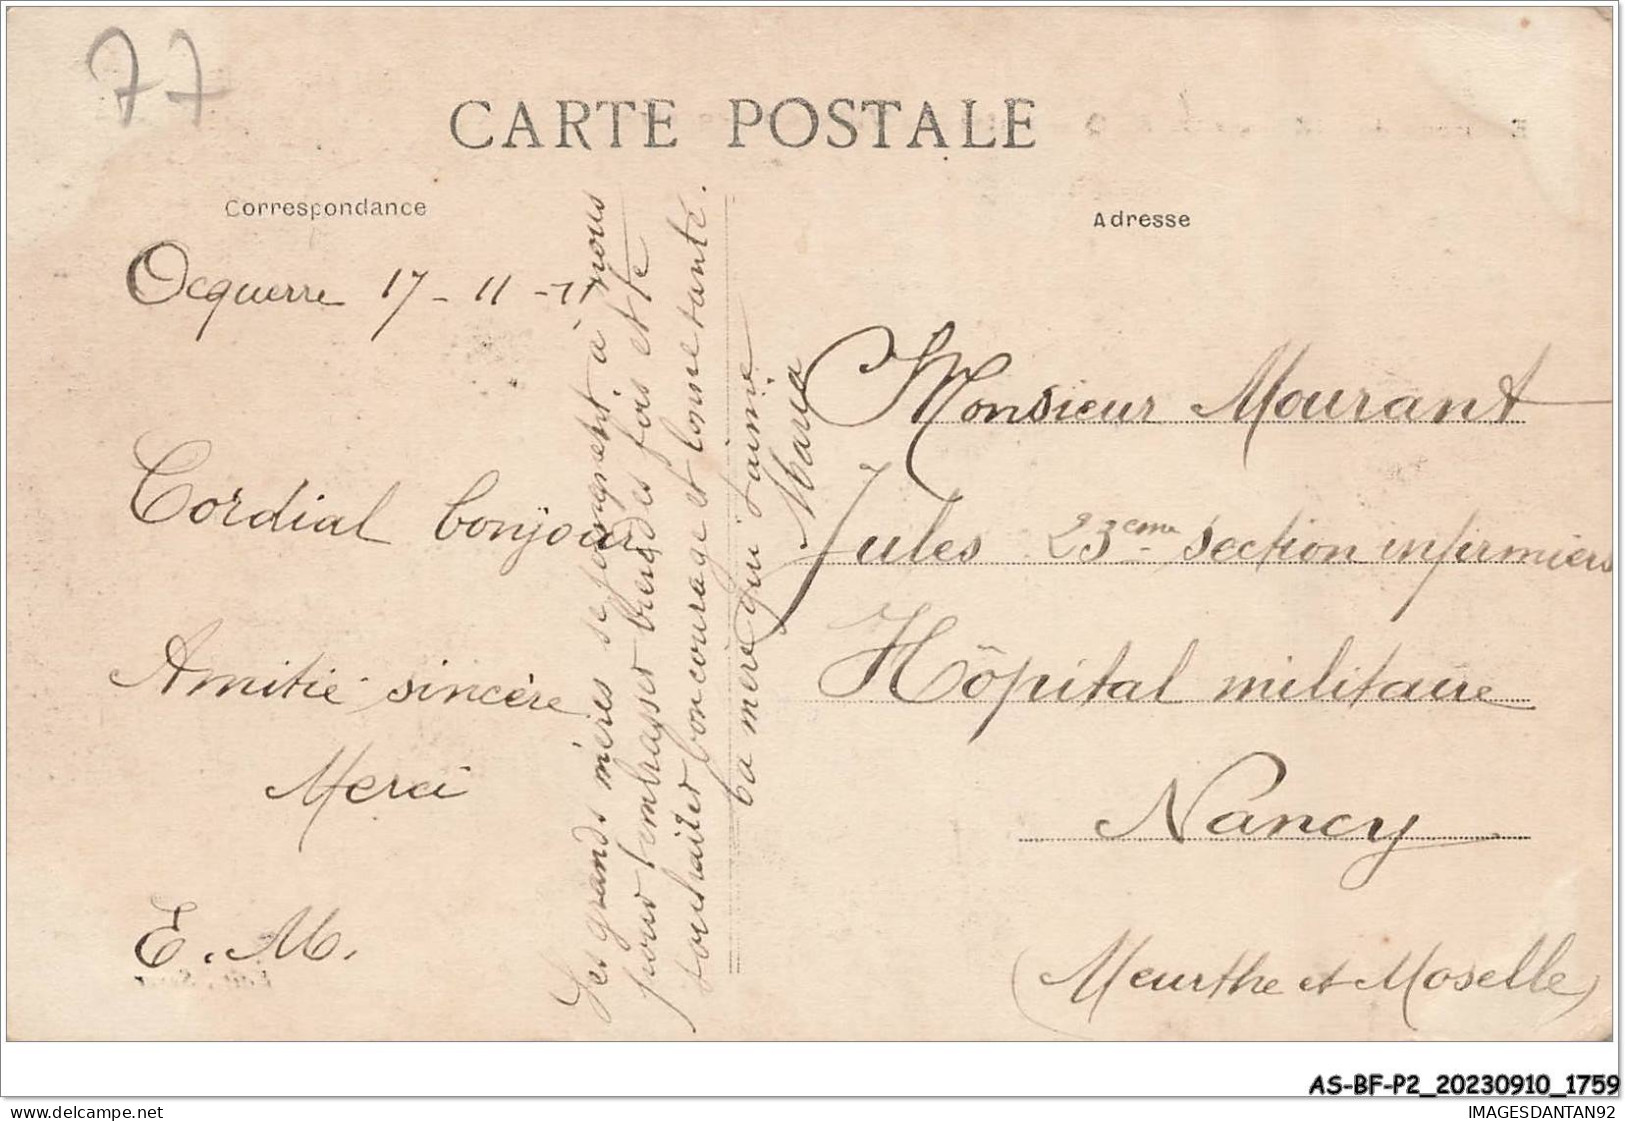 77
CARTE POSTALE
Correspondance
Adresse
Ocquerre 17-11-11
Cordial bonjour
Amitié sincère
Merci
E. M.
Tes grands mères se joignent à nous
pour t'embrasser bien des fois et te
souhaiter bon courage et bonne santé.
ta mère qui t'aime
Maria
Monsieur Mourant
Jules 23eme section infirmiers
Hôpital militaire
Nancy
(Meurthe et Moselle)
AS-BF-P2_20230910_1759
delcampe.net
IMAGESDANTAN92